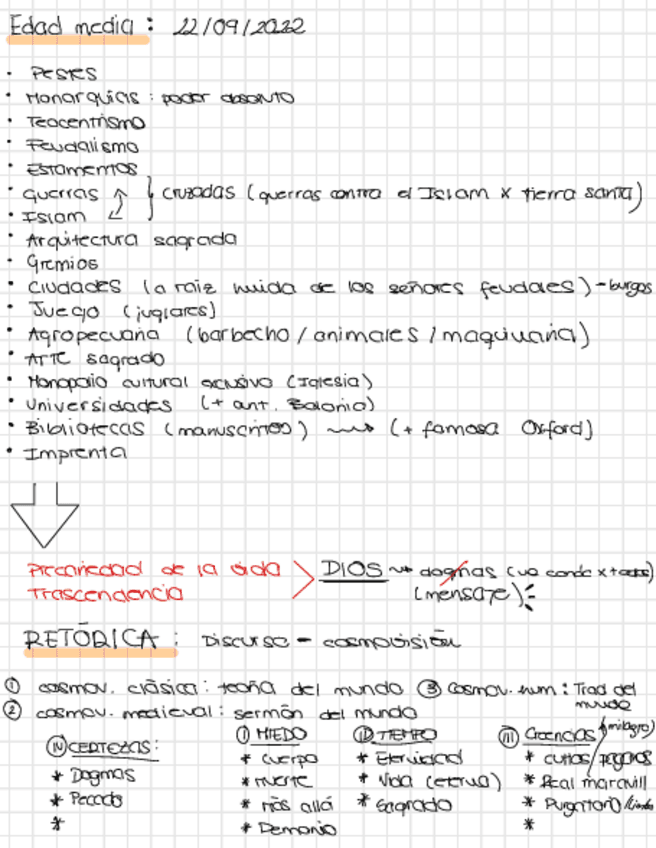 Edad media: 22/09/2022
· Pestes
· Monarquías: poder absoluto
· Teocentrismo
· Feudalismo
· Estamentos
· Guerras } cruzadas (guerras contra el Islam x tierra santa)
· Islam
· Arquitectura sagrada
· Gremios
· Ciudades (a raíz huida de los señores feudales) - burgos
· Juego (juglares)
· Agropecuaria (barbecho / animales / maquinaria)
· Arte sagrado
· Monopolio cultural exclusivo (Iglesia)
· Universidades (+ ant. Bolonia)
· Bibliotecas (manuscritos) → (+ famosa Oxford)
· Imprenta
Precariedad de la vida
Trascendencia
DIOS → dogmas
(mensaje)
RETÓRICA: Discurso - cosmovisión
① cosmov. clásica: teoría del mundo ③ Cosmov. hum: Trad del mundo
② cosmov. medieval: sermón del mundo
Ⓘ MIEDO
* Cuerpo
* Muerte
* Más allá
* Demonio
Ⓘ TIEMPO
* Eternidad
* Vida (eterna)
* Sagrado
Ⓘ Creencias
(milagro)
* cultos/paganos
* Real maravill
* Purgatorio
*
Ⓘ CERTEZAS:
* Dogmas
* Pecado
*